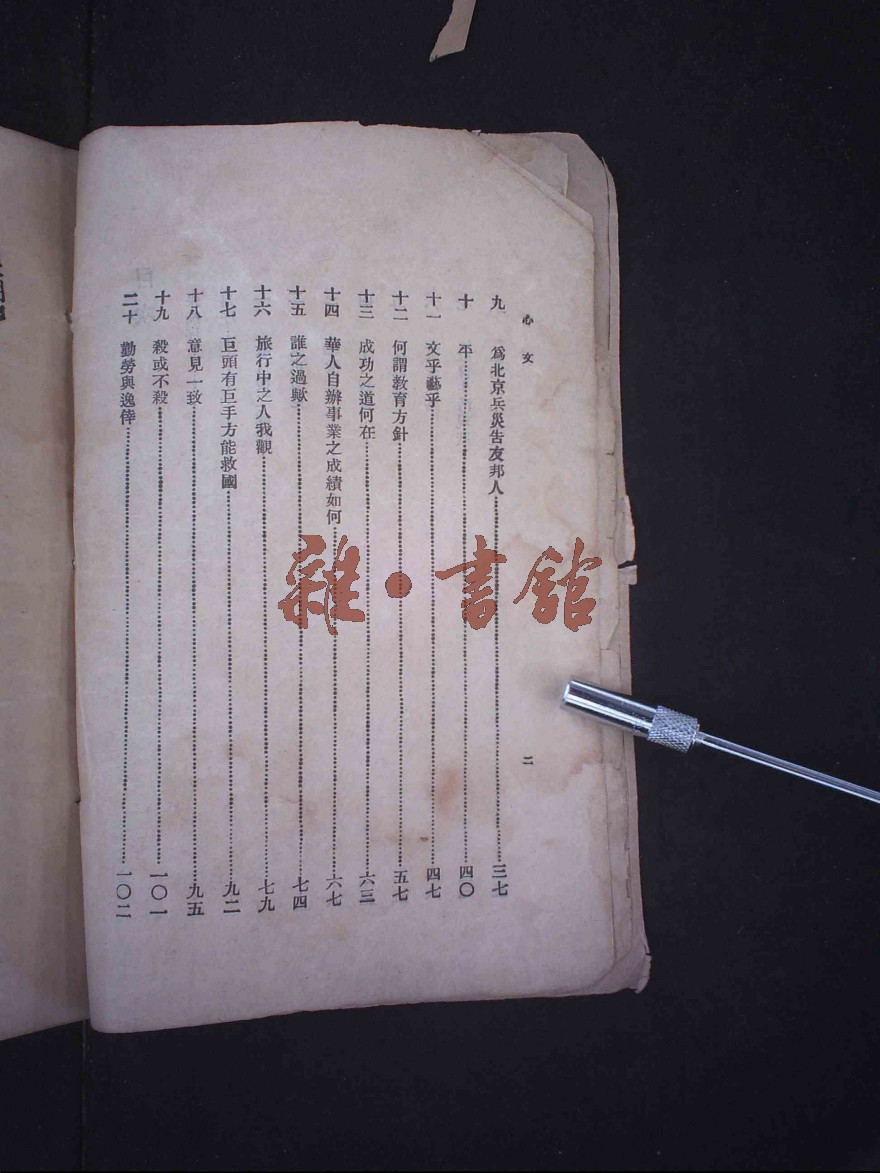 心文
二
九 爲北京兵災告友邦人……三七
十 平……四〇
十一 文乎藝乎……四七
十二 何謂教育方針……五七
十三 成功之道何在……六三
十四 華人自辦事業之成績如何……六七
十五 誰之過歟……七四
十六 旅行中之人我觀……七九
十七 巨頭有巨手方能救國……九二
十八 意見一致……九五
十九 殺或不殺……一〇一
二十 勤勞與逸倖……一〇二
雜·書館